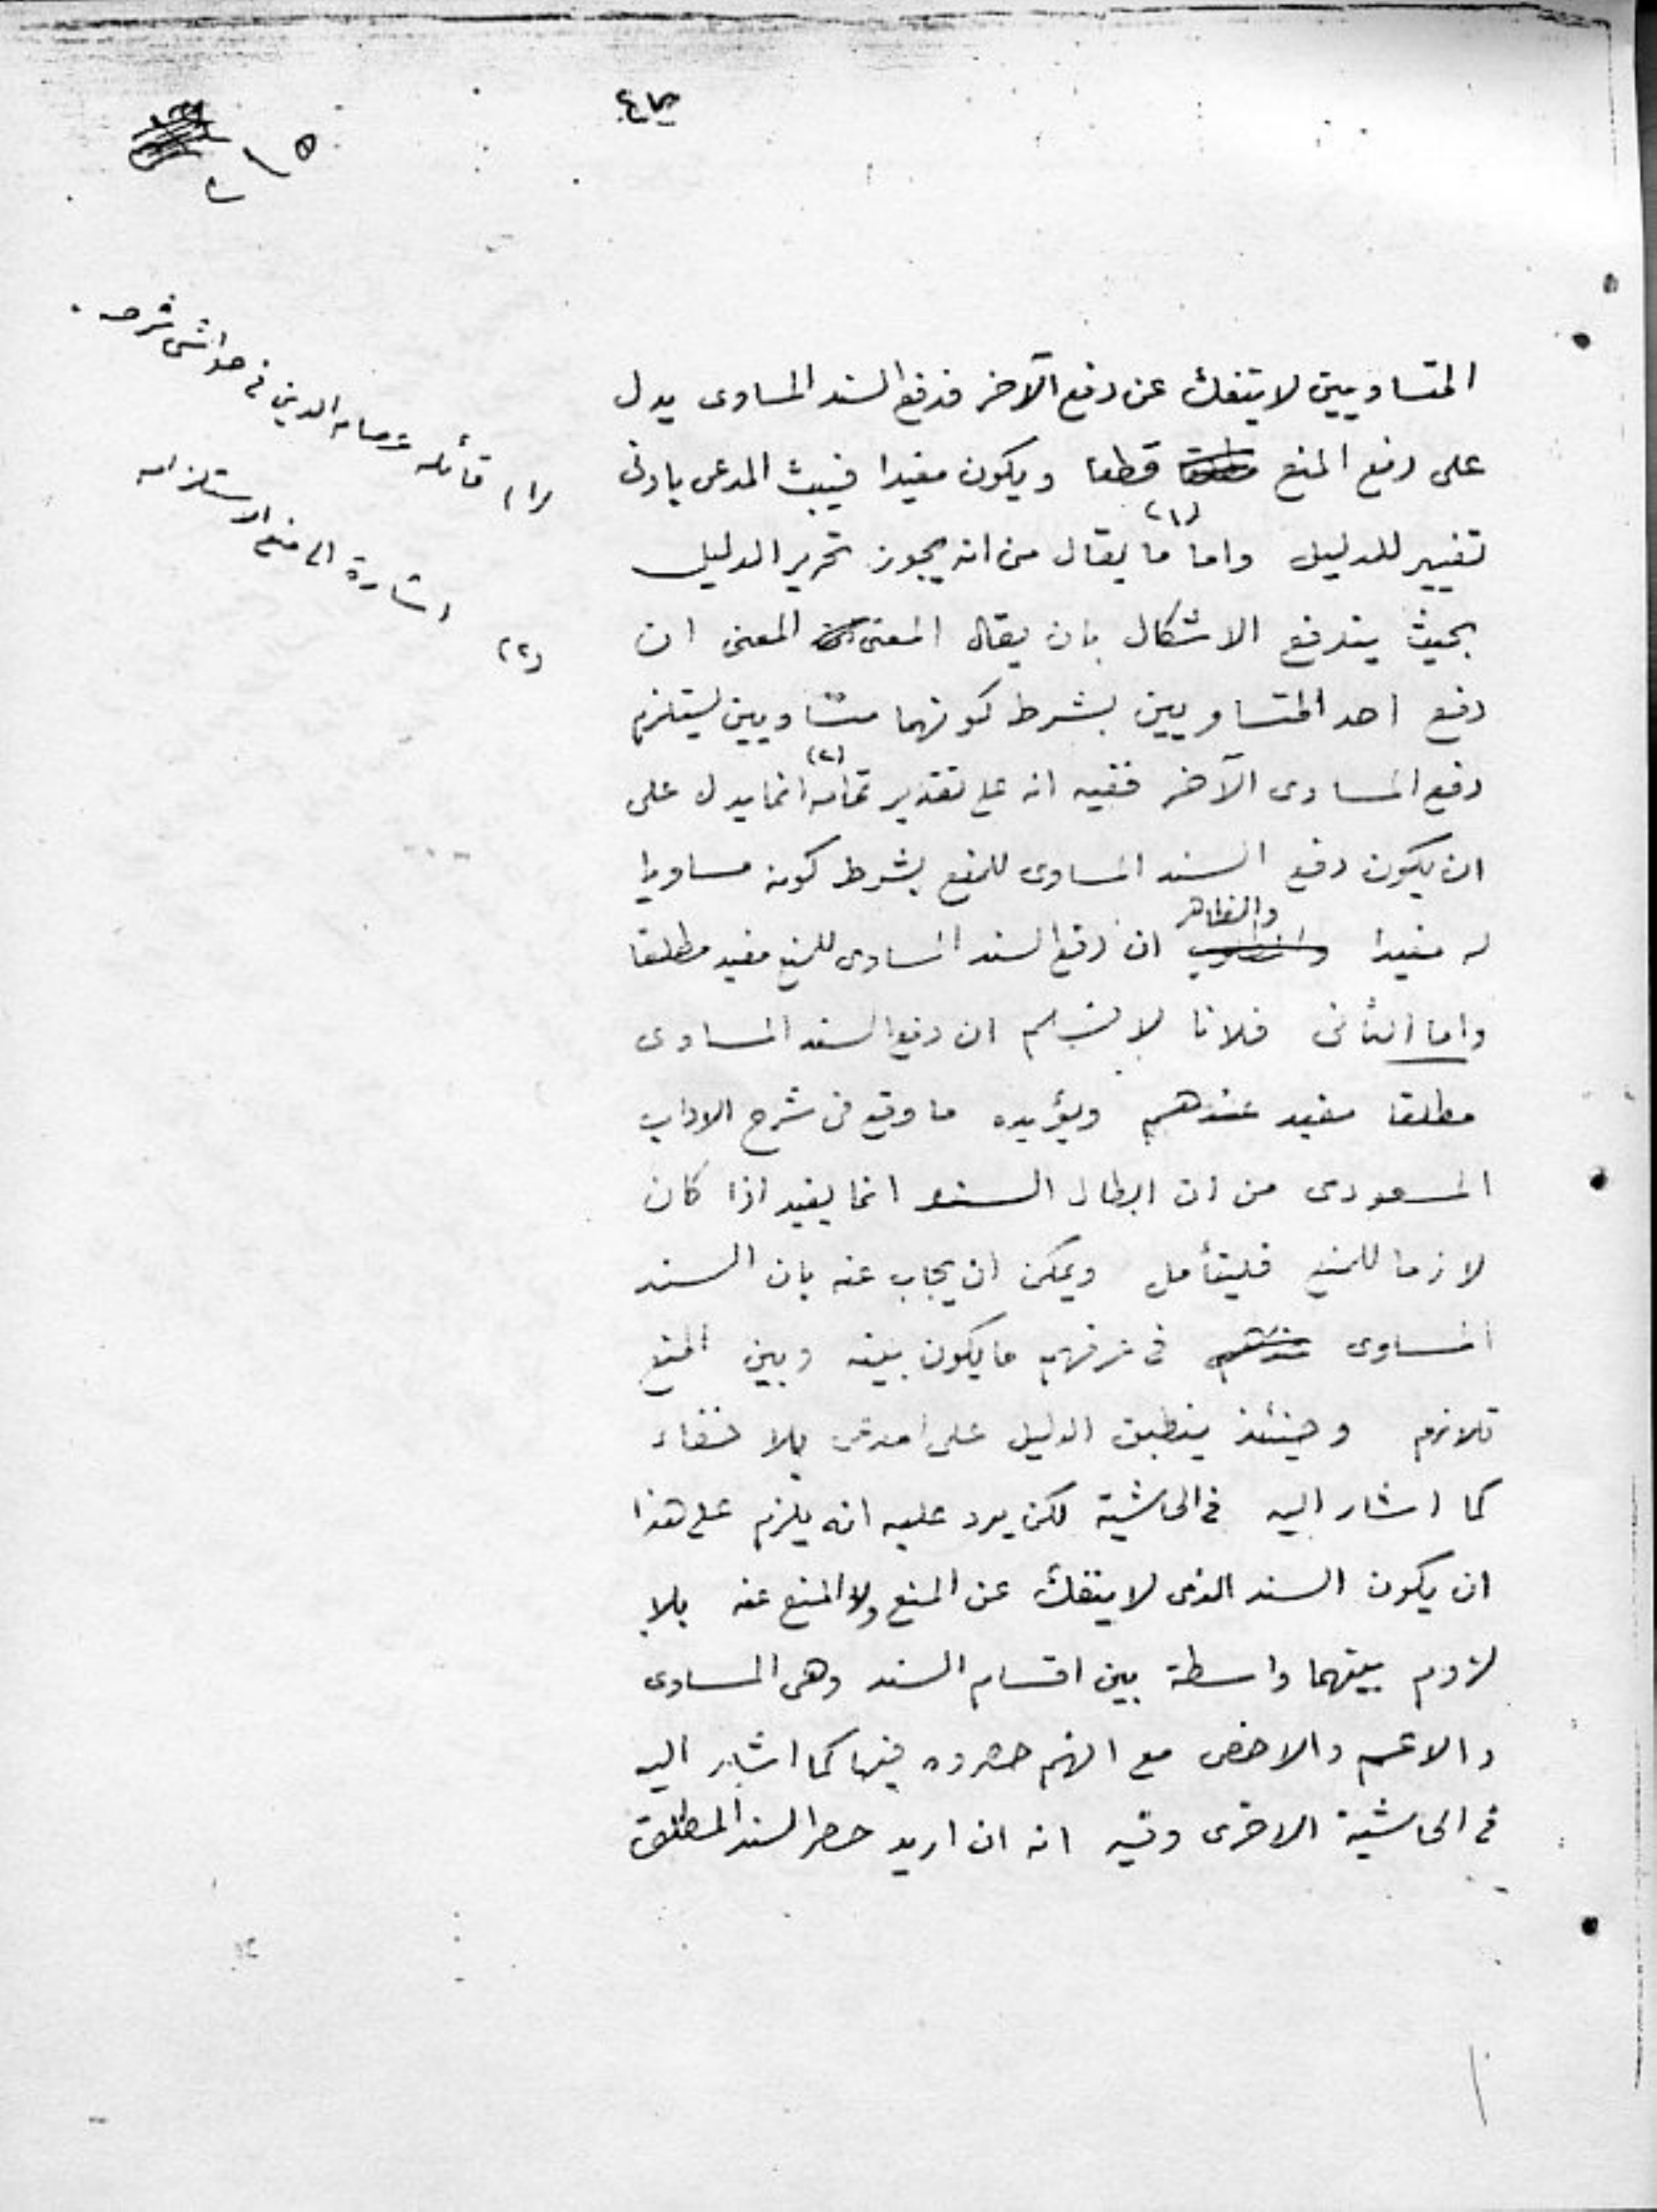 المتساويين لا يتفك عن دفع الآخر فدفع السند المساوى يدل
على دفع المنع قطعا ويكون مفيدا فيثبت المدعى بادنى
تغيير للدليل واما (١) ما يقال من انه يجوز تحرير الدليل
بحيث يندفع الاشكال بان يقال المعنى ان
دفع احد المتساويين بشرط كونهما متساويين يستلزم
دفع المساوى الآخر ففيه انه على تقدير تمامه (٢) انما يدل على
ان يكون دفع السند المساوى للمنع بشرط كونه مساويا
له مفيدا والظاهر ان دفع السند المساوى للمنع مفيد مطلقا
واما الثانى فلانا لا نسلم ان دفع السند المساوى
مطلقا مفيد عندهم ويؤيده ما وقع فى شرح الاداب
المسعودى من ان ابطال السند انما يفيد اذا كان
لازما للمنع فليتأمل ويمكن ان يجاب عنه بان السند
المساوى فى عرفهم ما يكون بينه وبين المنع
تلازم وحينئذ ينطبق الدليل على المدعى بلا خفاء
كما اشار اليه فى الحاشية لكن يرد عليه انه يلزم على هذا
ان يكون السند الذى لا ينفك عن المنع ولا المنع عنه بلا
لزوم بينهما واسطة بين اقسام السند وهى المساوى
والاعم والاخص مع انهم حصروه فيها كما اشار اليه
فى الحاشية الاخرى وفيه انه ان اريد حصر السند المطلق
(١) قائله عصام الدين فى حواشى شرحه .
(٢) اشارة الى منع الاستلزام